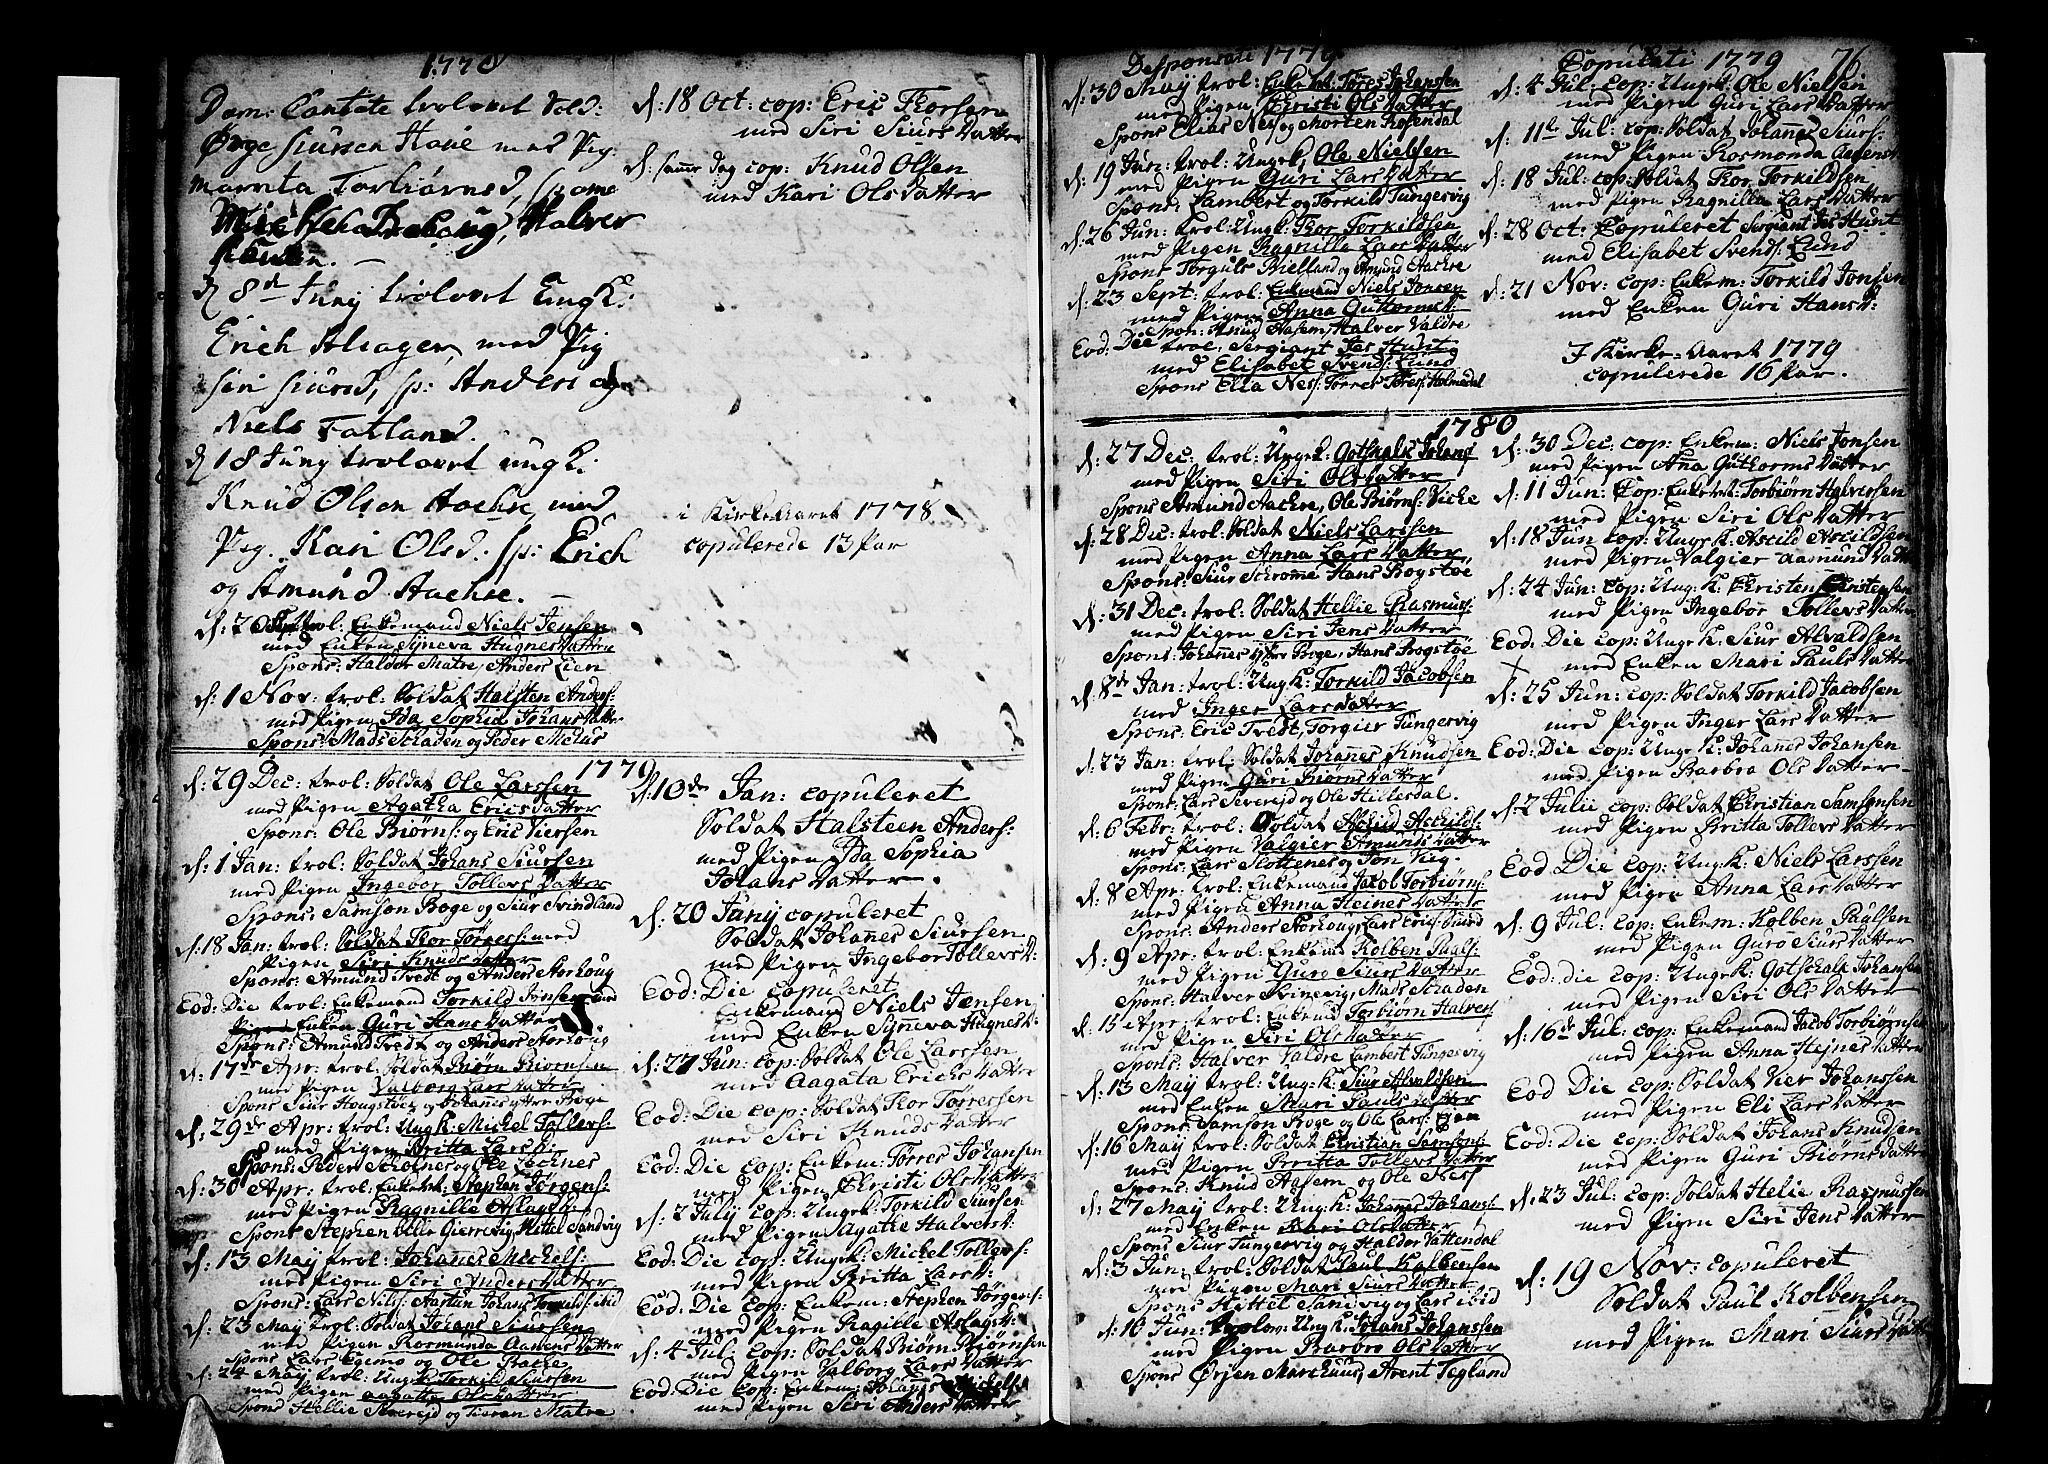 1778
Dom: Cantate trolovet Sold:
Ørge Siursen Hove med Pig:
marrita Torbiørnsd,
Halver
d 8de Juny trolovet Ungk:
Erich Alsager, med Pig
Siri Siursd, sp: Anders og
Niels Fatland.
d 18 Juny trolovet ungk:
Knud Olsen Aachre, med
Pig. Kari Olsd: sp: Erich
og Amund Aachre.
d: 20 trol: Enkemand Niels Jensen
med Enken Syneva Hugnes Datter
Spons: Haldor Matre, Anders Lien
d: 1 Nov: trol: Soldat Halsten Anders:
med Pigen Ida Sophia Johans Datter
Spons: Mads Straden og Peder Melus
d: 18 Oct: cop: Eric Thorsen
med Siri Siurs Datter
d: samme dag cop: Knud Olsen
med Kari Ols Datter
i Kirke Aaret 1778
copulerede 13 Par
1779
d: 29 Dec: trol: Soldat Ole Larssen
med Pigen Agatha Erics Datter
Spons: Ole Biørns: og Eric Viersen
d: 1 Jan: trol: Soldat Johans Siursen
med Pigen Ingebor Tollevs Datter
Spons: Samson Boge og Siur Svindland
d: 18 Jan: trol: Soldat Thor Tørress: med
Pigen Siri Knuds Datter
Spons: Amund Tredt og Anders Storhoug
Eod: Die trol: Enkemand Torkild Jonsen med
Enken Guri Hans Datter
Spons: Amund Tredt og Anders Storhoug
d: 17de Apr: trol: Soldat Biørn Biørnsen
med Pigen Valborg Lars Datter
Spons Siur Hougstøen og Johanes yttre Boge
d: 29de Apr: trol: Ungk: Michel Tollefs:
med Pigen Britta Larsd:
Spons: Peder Scholnes og Ole Lechnes
d: 30 Apr: trol: Enkem: Stephen Jørgens:
med Pigen Ragnille Aslagsd:
Spons Stephen Gierevig Hittel Sandvig
d: 13 May trol: Johannes Michels:
med Pigen Siri Anders Datter
Spons: Lars Nils: Aartun Johans Torkilds: ibid
d: 23 May trol: Soldat Johans Siursen
med Pigen Rosmunda Aamens Datter
Spons Lars Egemo og Ole Bache
d: 24 May trol: Ungk: Torkild Siursen
med Pigen Aagatte Ols Datter
Spons Hellie Severejd og Matre
d: 10de Jan: copuleret
Soldat Halsteen Anders:
med Pigen Ida Sophia
Johans Datter.
d: 20 Juny copuleret
Soldat Johanes Siursen
med Pigen Ingebor Tollevs D:
Eod: Die copuleret
Enkemand Niels Jensen
med Enken Synneva Hugnes D:
d: 27 Jun: cop: Soldat Ole Larssen
med Aagata Erichs Datter
Eod: Die cop: Soldat Thor Tørressen
med Siri Knuds Datter
Eod: Die cop: Enkem: Tørres Johansen
med Pigen Christi Ols Datter
d: 2 July cop: Ungk: Torkild Siurses:
med Pigen Agatie Halvers D:
Eod: Die cop: Ungk: Michel Tollefs:
med Pigen Britta Larsd:
Eod: Die cop: Enkem: Stephen Jørgens:
med Pigen Ragille Aslagsd:
d: 4 Jul: cop: Soldat Biørn Biørnsen
med Pigen Valborg Lars Datter
Eod: Die cop: Enkem: Johanes Michels:
med Pigen Siri Anders Datter
Desponsati 1779
d: 30 May trol: Enkem: Tøres Johansen
med Pigen Christi Ols Datter
Spons Elias Nes og Morten Rosendal
d: 19 Jun: trol: Ungk, Ole Nielsen
med Pigen Guri Lars Datter
Spons, Lambert og Torkild Tungesvig
d: 26 Jun: trol: Ungk: Thor Torkildsen
med Pigen Ragnilla Lars Datter
Spons Torguls Bielland og Amund Aachre
d: 23 Sept: trol: Enkemand Niels Jonsen
med Pigen Anna Guttormsd:
Spon: Knud Aasem, Halver Valdre
Eod: Die trol. Sergiant Jes Hunt
med Elisabet Svends: Lund
Spons Elia Nes: Tørres Tøres: Holmedal
Copulati 1779
76
d: 4 Jul: cop: Ungk: Ole Nielsen
med Pigen Guri Lars Datter
d: 11te Jul: cop: Soldat Johanes Siurs:
med Pigen Rosmonda
d: 18 Jul: cop: Soldat Thor Torkildsen
med Pigen Ragnilla Lars Datter
d: 28 Oct: Copuleret Sergiant Jes Hunt
med Elisabet Svends: Lund
d: 21 Nov: cop: Enkem: Torkild Jonsen
med Enken Guri Hansd:
I Kirke-Aaret 1779
copulerede 16 Par.
1780
d: 27 Dec: trol: Ungk: Gotshalk Johans:
med Pigen Siri Ols Datter
Spons Amund Aachre, Ole Biørns: Viche
d: 28 Dec: trol: Soldat Niels Larssen
med Pigen Anna Lars Datter
Spons: Siur Schromme Hans Bogstøe
d: 31 Dec: trol: Soldat Hellie Rasmus:
med Pigen Siri Jens Datter
Spons: Johannes yttre Boge, Hans Bogstøe
d: 8de Jan: trol: Ungk: Torkild Jacobsen
med Inger Larsdatter
Spons: Eric Tredt, Torgier Tungesvig
d: 23 Jan: trol: Soldat Johannes Knudsen
med Pigen Guri Biørns Datter
Spons: Lars Severejd og Ole Hillesdal.
d: 6 Febr: trol: Soldat Ascild Ascilds:
med Pigen Valgier Amunds Datter
Spons: Lars Slottenes og Jon Vieg.
d: 8 Apr: trol: Enkemand Jacob Torbiørns:
med Pigen Anna Heines Datter
Spons: Anders Storhoug, Lars Erics: Lund
d: 9 Apr: trol: Enkemd Kolben Paals:
med Pigen Guro Siurs Datter
Spons: Halver Svinevig, Mads Straden
d: 15 Apr: trol: Enkemd Torbiørn Halvers:
med Pigen Siri Ols Datter
Spons: Halver Valdre Lambert Tungesvig
d: 13 May trol: Ungk: Siur Alvaldsen
med Enken Mari Pauls Datter
Spons: Samson Boge og Ole Lars: Ejen
d: 16 May trol: Soldat Christian Samsons:
med Pigen Britta Tollevs Datter
Spons: Knud Aasem og Ole Nes:
d: 27 May trol: Ungk: Johannes Johans:
med Enken Kari Ols Datter
Spons Siur Tungesvig og Haldor Vattendal
d: 3 Jun: trol: Soldat Paul Kolbensen
med Pigen Mari Siurs Datter
Spons Hittel Sandvig og Lars ibid
d: 10 Jun: trolov: Ungk: Johans Johanssen
med Pigen Barbro Ols Datter
Spons Ørjen Marchuus, Arent Tegland
d: 30 Dec: cop: Enkem: Niels Jonsen
med Pigen Anna Guthorms Datter
d: 11 Jun: Cop: Enkem: Torbiørn Halverssen
med Pigen Siri Ols Datter
d: 18 Jun cop: Ungk: Ascild Ascildsen
med Pigen Valgier Aamund Datter
d: 24 Jun: cop: Ungk: Christen Christensen
med Pigen Ingebor Tollevs Datter
Eod: Die cop: Ungk: Siur Alvaldsen
med Enken Mari Pauls Datter
d: 25 Jun: cop: Soldat Torkild Jacobsen
med Pigen Inger Lars Datter
Eod: Die cop: Ungk: Johannes Johansen
med Pigen Barbro Ols Datter
d: 2 Julie cop: Soldat Christian Samsonsen
med Pigen Britta Tollevs Datter
Eod Die Cop: Ungk: Niels Larssen
med Pigen Anna Lars Datter
d: 9 Jul: cop: Enkem: Kolben Paulsen
med Pigen Guro Siurs Datter
Eod: die cop: Ungk: Gotschalk Johansen
med Pigen Siri Ols Datter
d: 16de Jul: cop: Enkemand Jacob Torbiørnsen
med Pigen Anna Hejnes Datter
Eod Die cop: Soldat Vier Johanssen
med Pigen Eli Lars Datter
Eod: Die cop: Soldat Johans Knudsen
med Pigen Guri Biørns Datter
d: 23 Jul: cop: Soldat Helie Rasmussen
med Pigen Siri Jens Datter
d: 19 Nov: copuleret
Soldat Paul Kolbensen
med Pigen Mari Siurs Datter